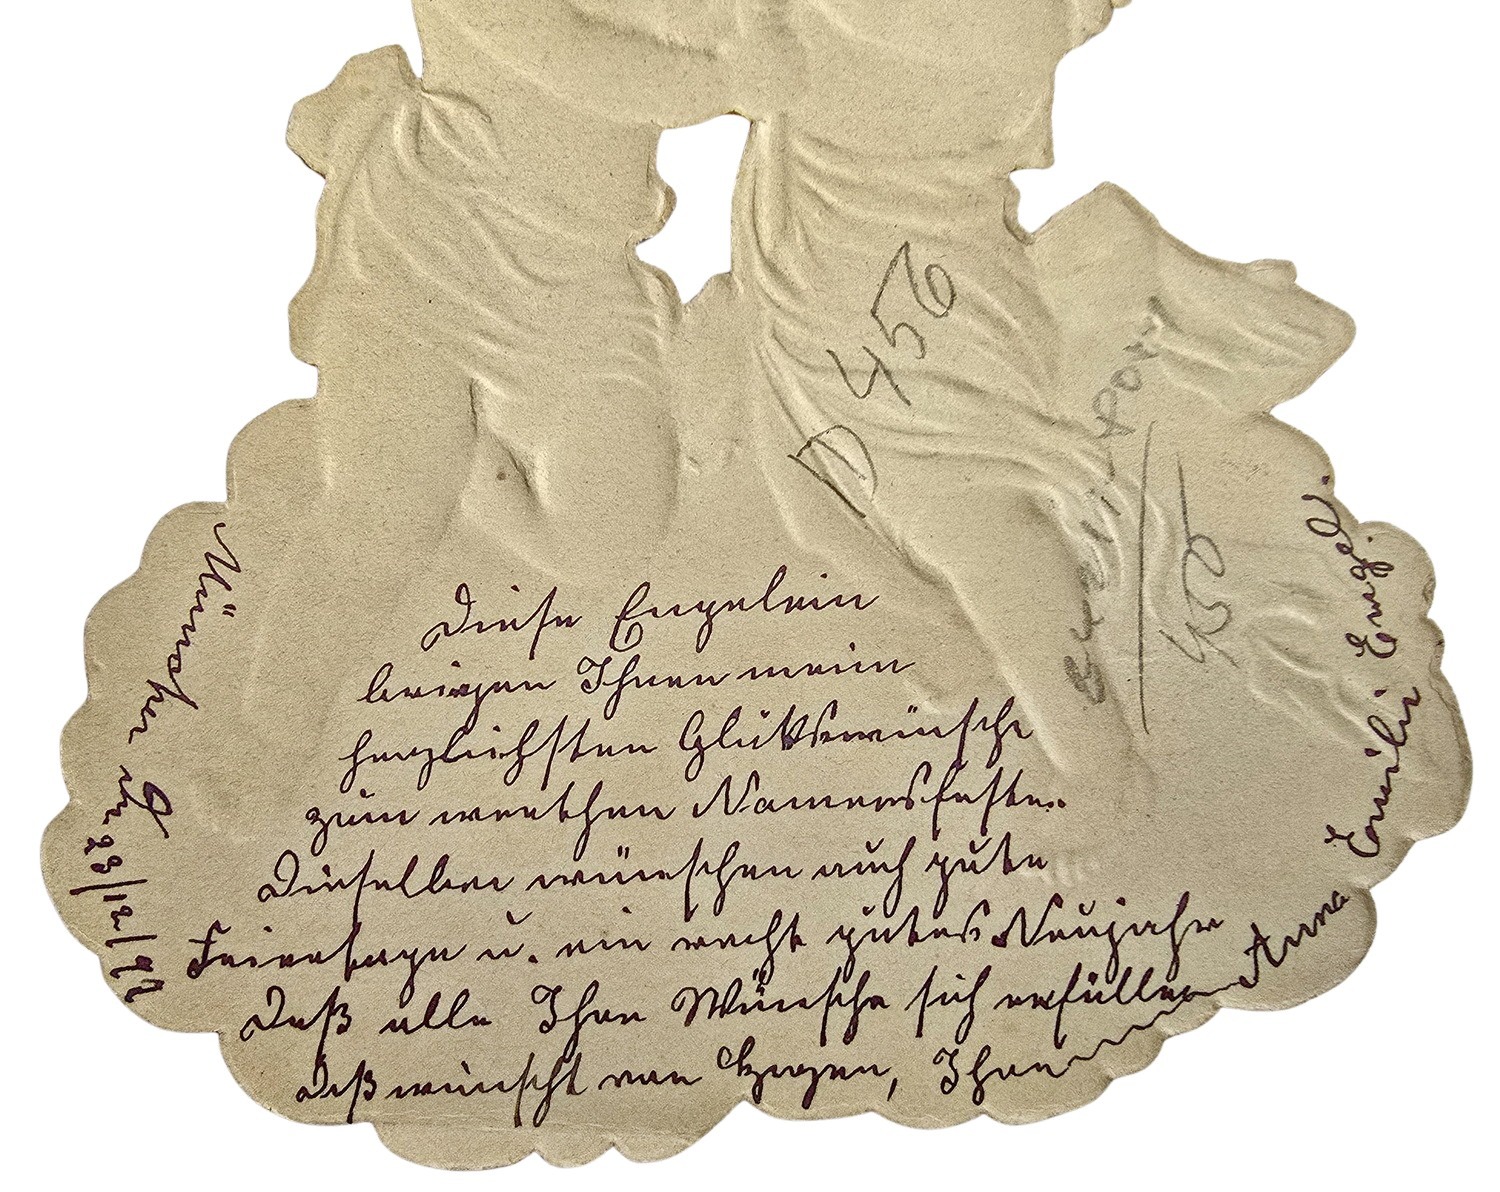 Diese Engelein
bringen Ihnen mein
herzlichsten Glückswünsche
zum werthen Namensfeste.
Dieselben wünschen auch gute
Feiertage u. ein recht gutes Neujahr
Daß alle Ihre Wünsche sich erfüllen
Daß wünscht von Herzen, Ihre
Anna Emilie Engel.
München den 23/12/99
D 456
450